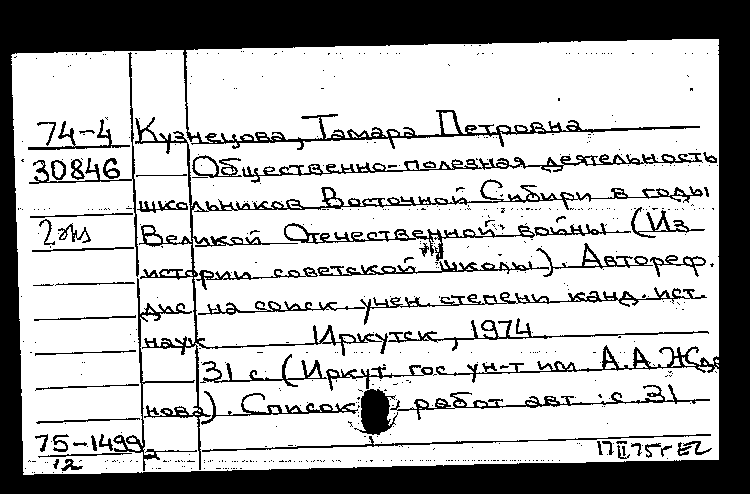 74-4 Кузнецова, Тамара Петровна
30846 Общественно-полезная деятельность
школьников Восточной Сибири в годы
2 экз Великой Отечественной войны (Из
истории советской школы). Автореф.
дис на соиск. учен. степени канд. ист.
наук Иркутск, 1974
31 с. (Иркут. гос. ун-т им. А.А. Жда
нова). Список работ авт.: с 31.
75-1499
12
17 II 75г